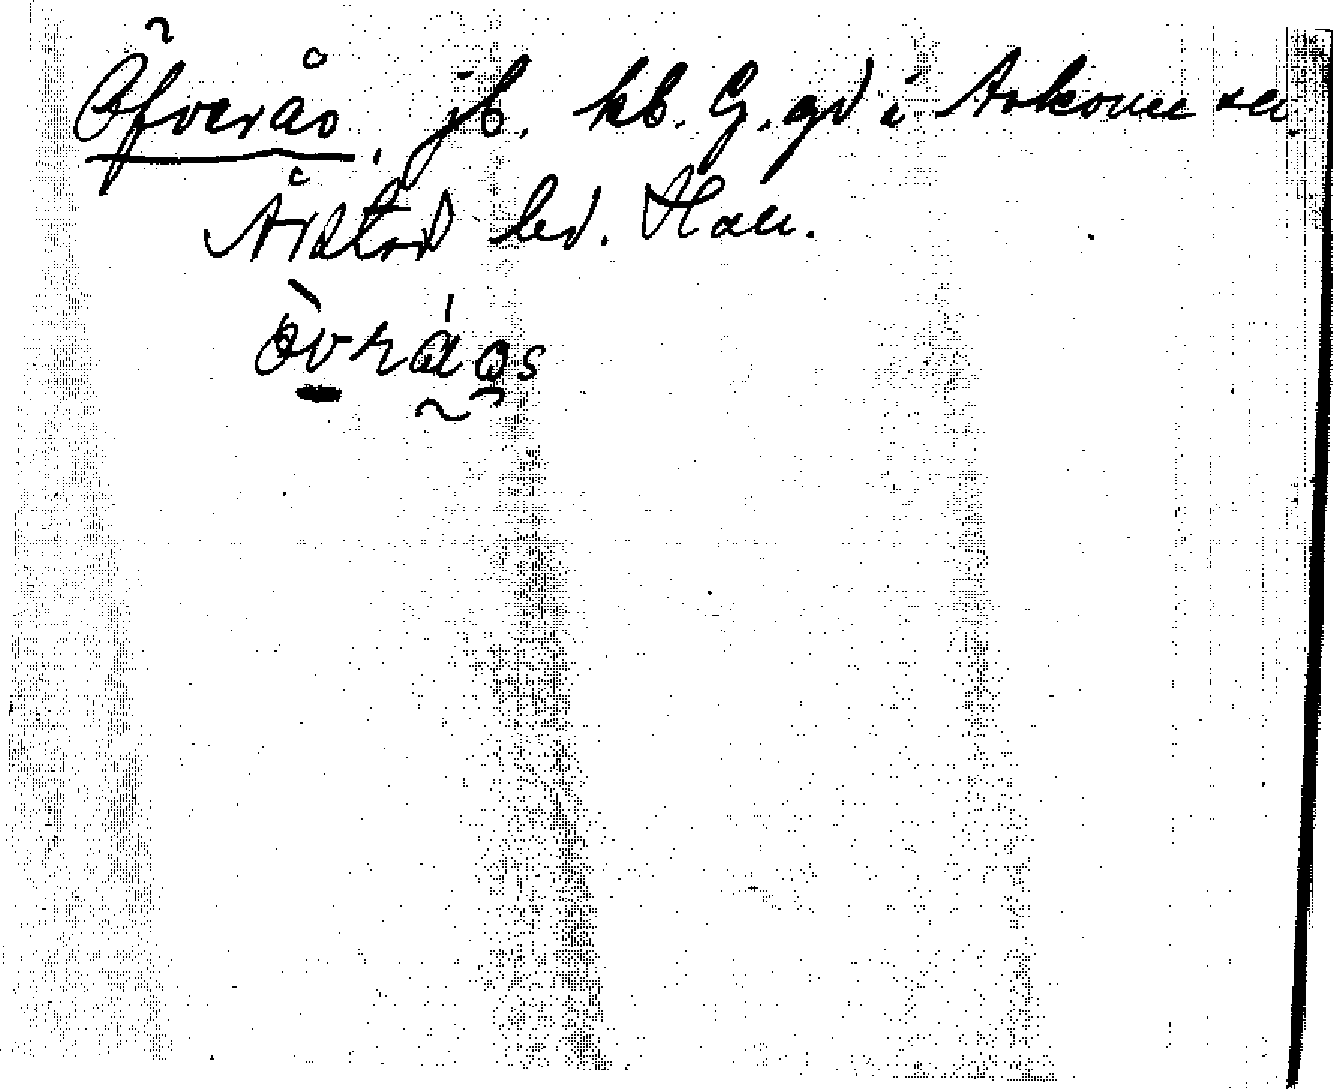 Öfverås, jb. kb. G. gd i Askome sn.
Årstad hd. Hall.
òvráos